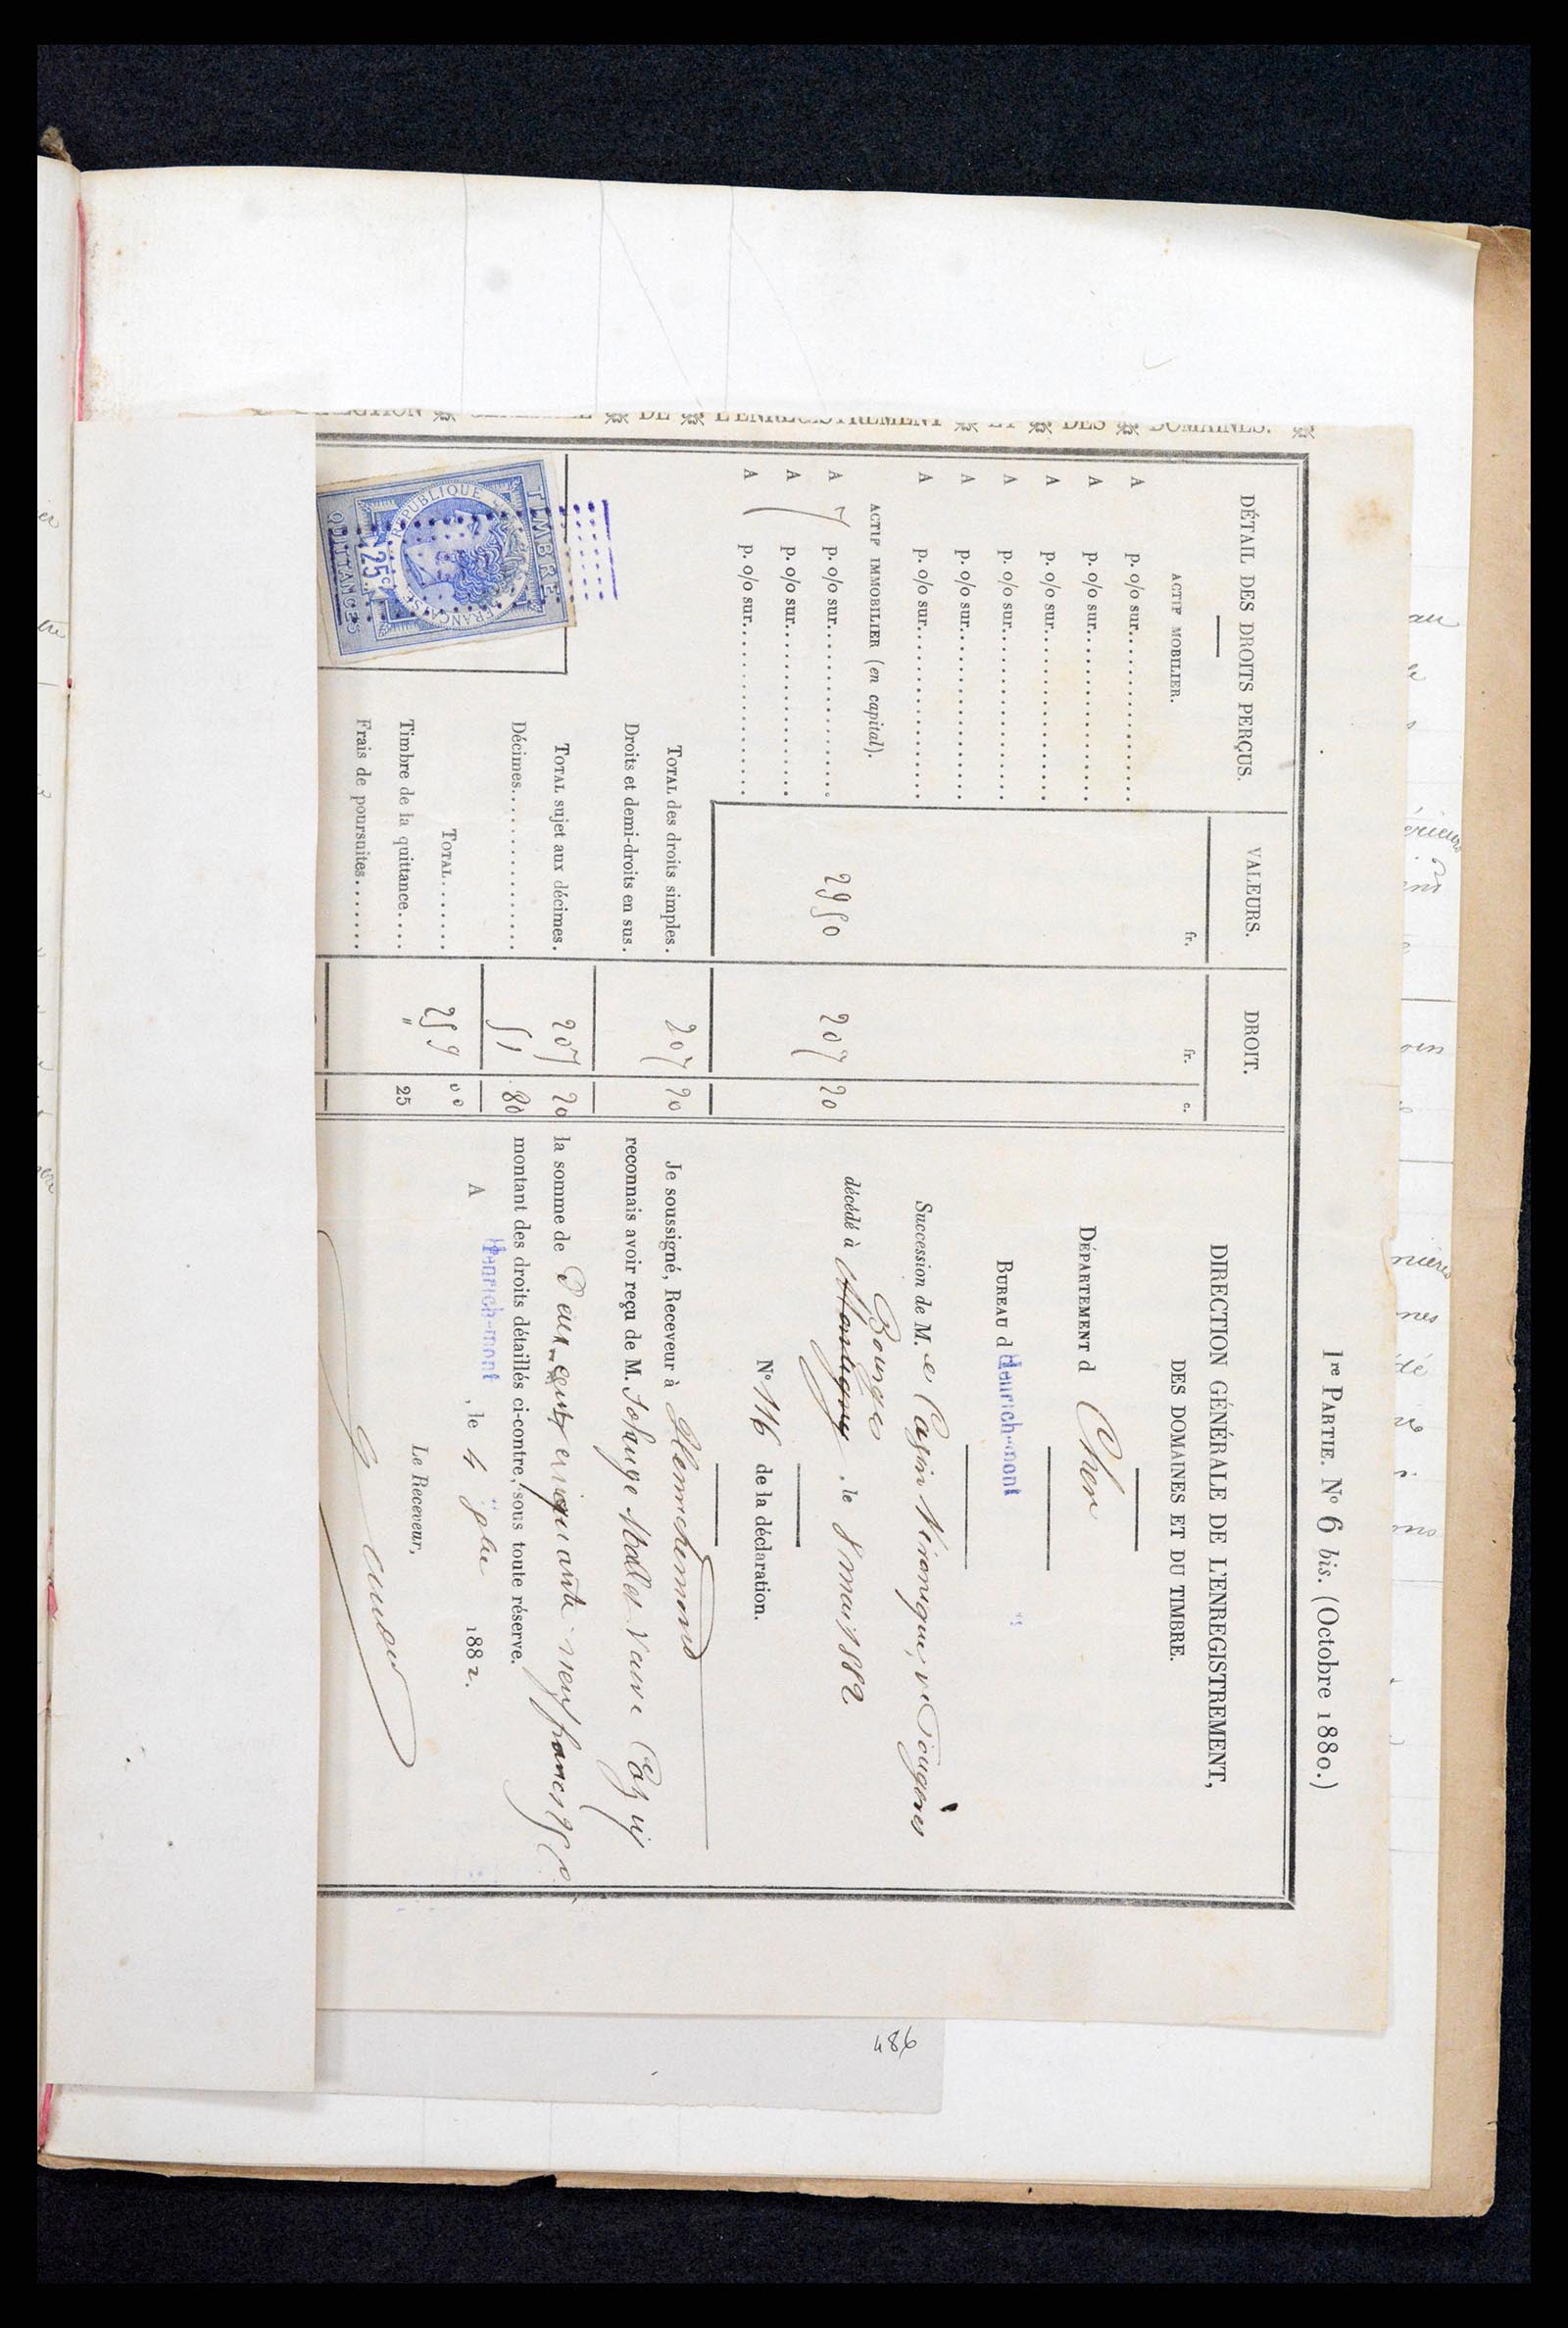 Iʳᵉ PARTIE. N° 6 bis. (Octobre 1880.)
DIRECTION GÉNÉRALE DE L'ENREGISTREMENT ET DES DOMAINES.
DÉTAIL DES DROITS PERÇUS.
VALEURS.
DROIT.
fr.
fr.
c.
ACTIF MOBILIER.
A p. 0/0 sur
A p. 0/0 sur
A p. 0/0 sur
A p. 0/0 sur
A p. 0/0 sur
A p. 0/0 sur
ACTIF IMMOBILIER (en capital).
A 7 p. 0/0 sur 2950 207 20
A p. 0/0 sur
A p. 0/0 sur
TOTAL des droits simples. 207 20
Droits et demi-droits en sus.
TOTAL sujet aux décimes. 207 20
Décimes 51 80
TOTAL 259 00
Timbre de la quittance " 25
Frais de poursuites
TIMBRE
RÉPUBLIQUE FRANÇAISE
25c
QUITTANCES
DIRECTION GÉNÉRALE DE L'ENREGISTREMENT,
DES DOMAINES ET DU TIMBRE.
DÉPARTEMENT d Cher
BUREAU d Henrich-mont
Succession de M.e Casin Véronique, ve Fougères
Bourges
décédé à Montigny, le 8 mai 1882
N° 116 de la déclaration.
Je soussigné, Receveur à Henrichemont
reconnais avoir reçu de M. Solange Mollet Veuve
la somme de Deux cent cinquante neuf francs 25 c
montant des droits détaillés ci-contre, sous toute réserve.
A Henrich-mont, le 4 1882.
Le Receveur,
486